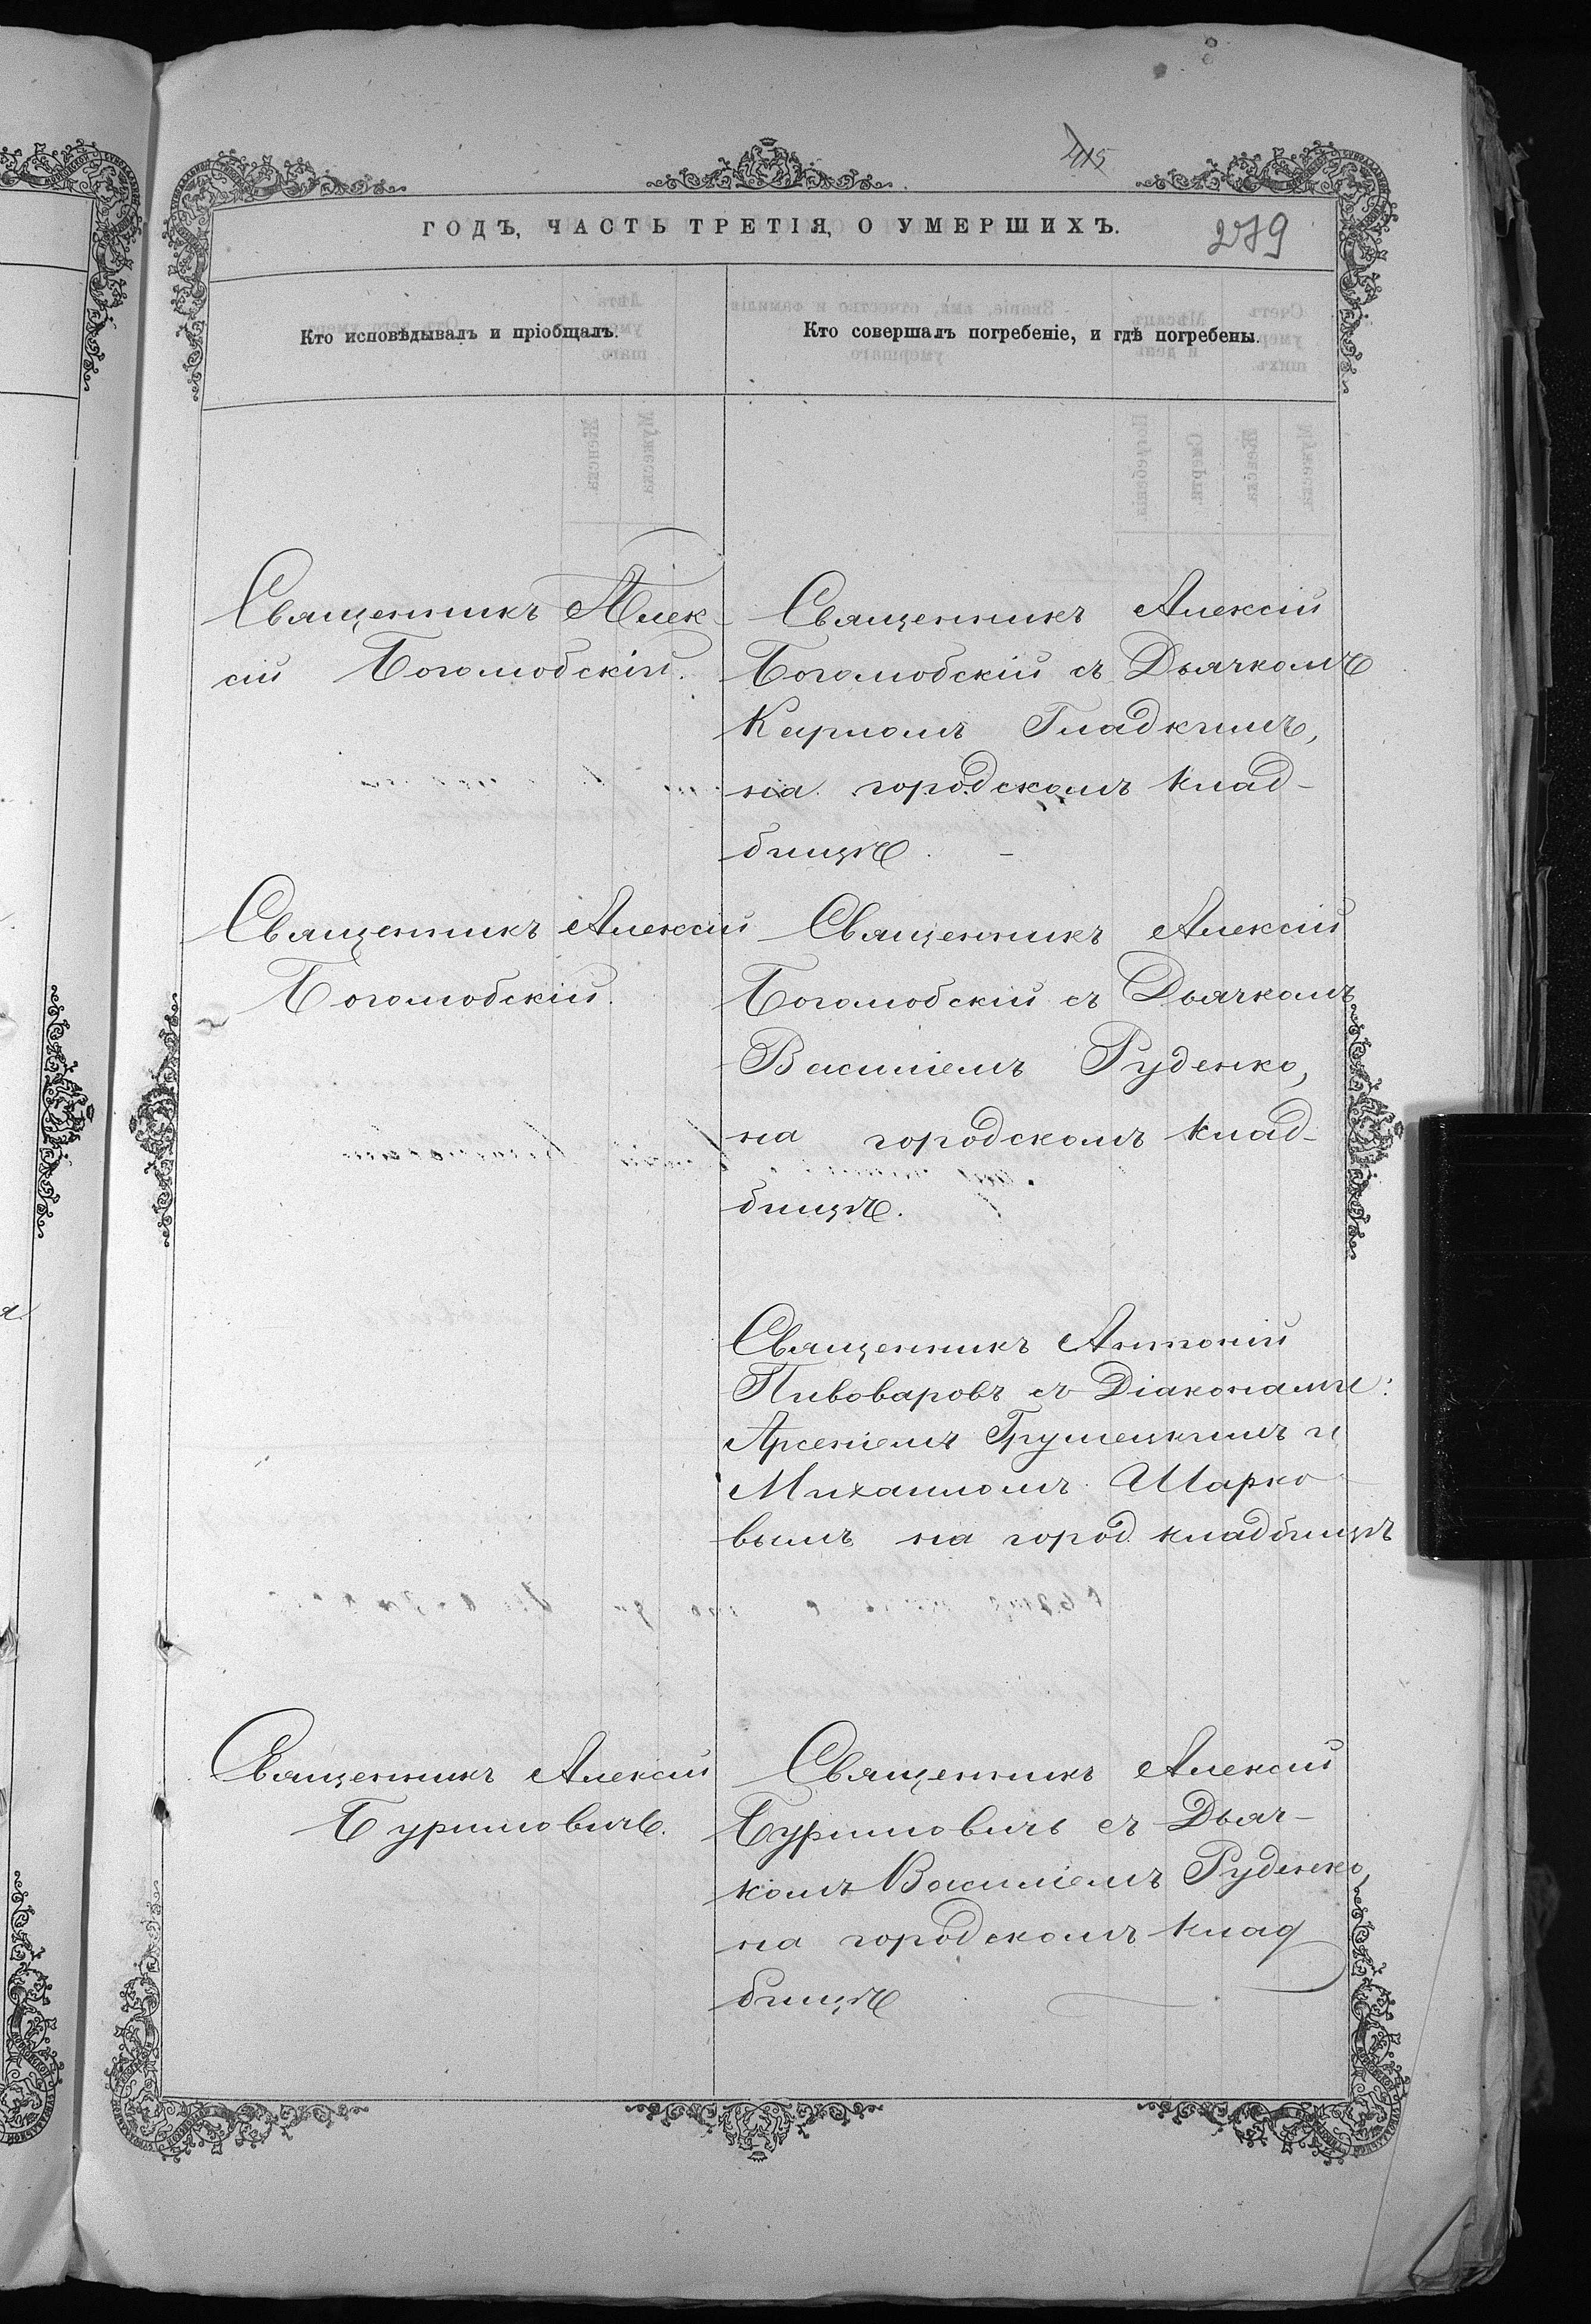 415
ГОДЪ, ЧАСТЬ ТРЕТІЯ, О УМЕРШИХЪ.
279
Кто исповѣдывалъ и пріобщалъ.
Кто совершалъ погребеніе, и гдѣ погребены.
Священникъ Алек-
сій Боголюбскій.
Священникъ Алексій
Боголюбскій съ Дьячкомъ
Карпомъ Гладкимъ,
на городскомъ клад-
бищѣ. -
Священникъ Алексій
Боголюбскій.
Священникъ Алексій
Боголюбскій съ Дьячкомъ
Василіемъ Руденко,
на городскомъ клад-
бищѣ.
Священникъ Антоній
Пивоваровъ съ Діаконами:
Арсеніемъ Грушецкимъ и
Михаиломъ Шарко-
вымъ на город. кладбищѣ
Священникъ Алексій
Буримовичъ.
Священникъ Алексій
Буримовичъ съ Дьяч-
комъ Василіемъ Руденко,
на городскомъ клад
бищѣ